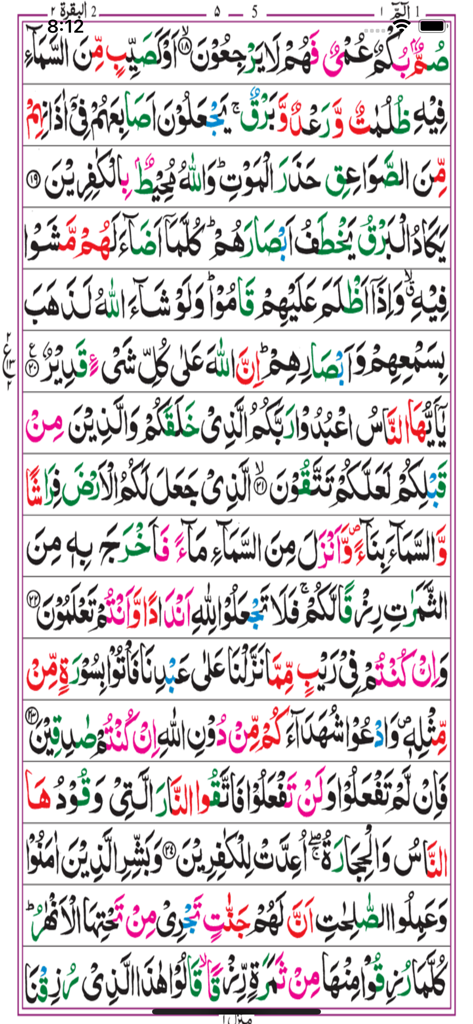 البقرة ٢ 2 ٥ - 5 الٓمّٓ ١ 1
8:12
صُمٌّۢ بُكْمٌ عُمْىٌ فَهُمْ لَا يَرْجِعُوْنَ ۙ‏﴿۱۸﴾ اَوْ كَصَيِّبٍ مِّنَ السَّمَآءِ
فِيْهِ ظُلُمٰتٌ وَّرَعْدٌ وَّبَرْقٌ ۚ يَجْعَلُوْنَ اَصَابِعَهُمْ فِىْٓ اٰذَانِهِمْ
مِّنَ الصَّوَاعِقِ حَذَرَ الْمَوْتِ ؕ وَاللّٰهُ مُحِيْطٌۢ بِالْكٰفِرِيْنَ ﴿۱۹﴾
يَكَادُ الْبَرْقُ يَخْطَفُ اَبْصَارَهُمْ ؕ كُلَّمَآ اَضَآءَ لَهُمْ مَّشَوْا
فِيْهِ ۙ وَاِذَآ اَظْلَمَ عَلَيْهِمْ قَامُوْا ؕ وَلَوْ شَآءَ اللّٰهُ لَذَهَبَ
بِسَمْعِهِمْ وَاَبْصَارِهِمْ ؕ اِنَّ اللّٰهَ عَلٰى كُلِّ شَىْءٍ قَدِيْرٌ ﴿۲۰﴾ ع
٢ ع ١٣ ٢
يٰٓاَيُّهَا النَّاسُ اعْبُدُوْا رَبَّكُمُ الَّذِىْ خَلَقَكُمْ وَالَّذِيْنَ مِنْ
قَبْلِكُمْ لَعَلَّكُمْ تَتَّقُوْنَ ۙ‏﴿۲۱﴾ الَّذِىْ جَعَلَ لَكُمُ الْاَرْضَ فِرَاشًا
وَّالسَّمَآءَ بِنَآءً ۪ وَّاَنْزَلَ مِنَ السَّمَآءِ مَآءً فَاَخْرَجَ بِهٖ مِنَ
الثَّمَرٰتِ رِزْقًا لَّكُمْ ۚ فَلَا تَجْعَلُوْا لِلّٰهِ اَنْدَادًا وَّاَنْتُمْ تَعْلَمُوْنَ ﴿۲۲﴾
وَاِنْ كُنْتُمْ فِىْ رَيْبٍ مِّمَّا نَزَّلْنَا عَلٰى عَبْدِنَا فَاْتُوْا بِسُوْرَةٍ مِّنْ
مِّثْلِهٖ ۪ وَادْعُوْا شُهَدَآءَكُمْ مِّنْ دُوْنِ اللّٰهِ اِنْ كُنْتُمْ صٰدِقِيْنَ ﴿۲۳﴾
فَاِنْ لَّمْ تَفْعَلُوْا وَلَنْ تَفْعَلُوْا فَاتَّقُوا النَّارَ الَّتِىْ وَقُوْدُهَا
النَّاسُ وَالْحِجَارَةُ ۖۚ اُعِدَّتْ لِلْكٰفِرِيْنَ ﴿۲۴﴾ وَبَشِّرِ الَّذِيْنَ اٰمَنُوْا
وَعَمِلُوا الصّٰلِحٰتِ اَنَّ لَهُمْ جَنّٰتٍ تَجْرِىْ مِنْ تَحْتِهَا الْاَنْهٰرُ ؕ
كُلَّمَا رُزِقُوْا مِنْهَا مِنْ ثَمَرَةٍ رِّزْقًا ۙ قَالُوْا هٰذَا الَّذِىْ رُزِقْنَا
منزل ١